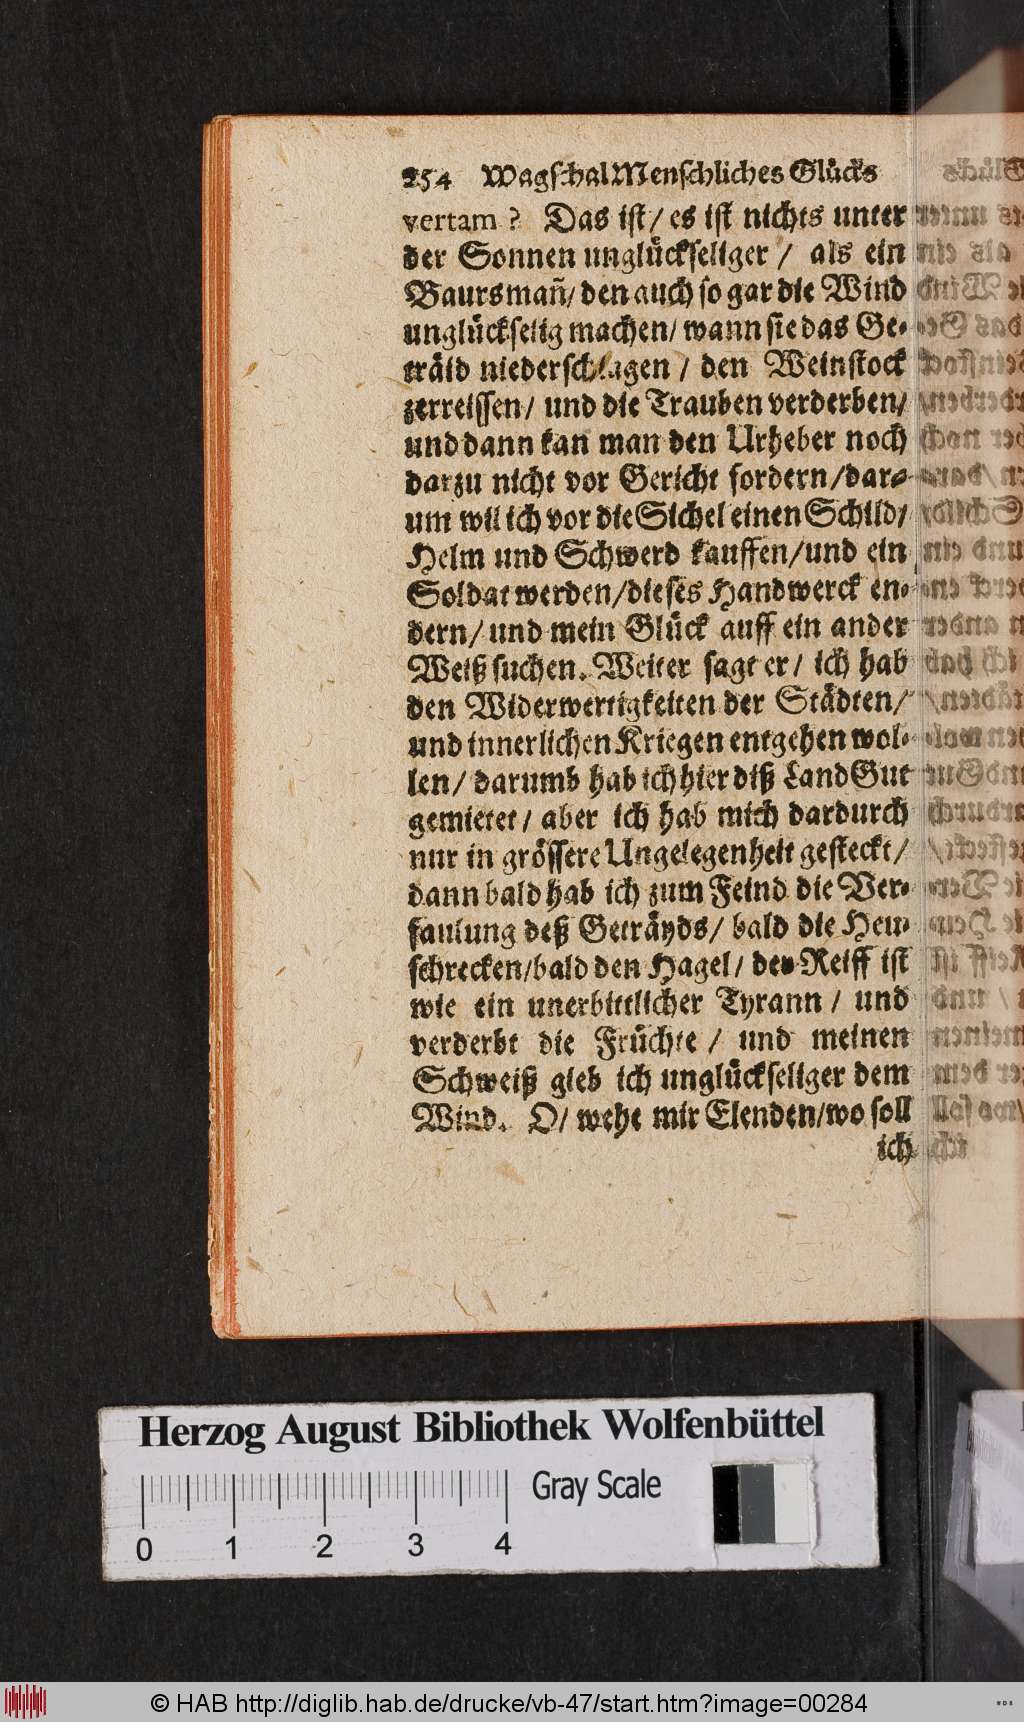 254 Wagschal Menschliches Glücks
vertam? Das ist/ es ist nichts unter
der Sonnen unglückseliger / als ein
Baursmañ/ den auch so gar die Wind
unglückselig machen/ wann sie das Ge-
träid niederschlagen / den Weinstock
zerreissen/ und die Trauben verderben/
und dann kan man den Urheber noch
darzu nicht vor Gericht fordern/dar-
um wil ich vor die Sichel einen Schild/
Helm und Schwerd kauffen/und ein
Soldat werden/dieses Handwerck en-
dern/ und mein Glück auff ein ander
Weiß suchen. Weiter sagt er/ ich hab
den Widerwertigkeiten der Städten/
und innerlichen Kriegen entgehen wol-
len/ darumb hab ich hier diß Land Gut
gemietet/ aber ich hab mich dardurch
nur in grössere Ungelegenheit gesteckt/
dann bald hab ich zum Feind die Ver-
faulung deß Geträyds/ bald die Hew-
schrecken/bald den Hagel/ der Reiff ist
wie ein unerbittlicher Tyrann / und
verderbt die Früchte / und meinen
Schweiß gieb ich unglückseliger dem
Wind. O/ wehe mir Elenden/wo soll
ich
Herzog August Bibliothek Wolfenbüttel
Gray Scale
0 1 2 3 4
© HAB http://diglib.hab.de/drucke/vb-47/start.htm?image=00284